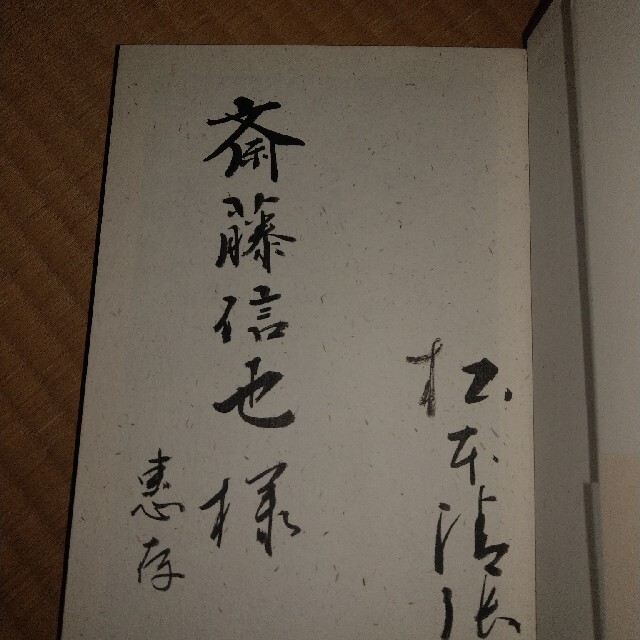 松本清張
斎藤信也様
恵存